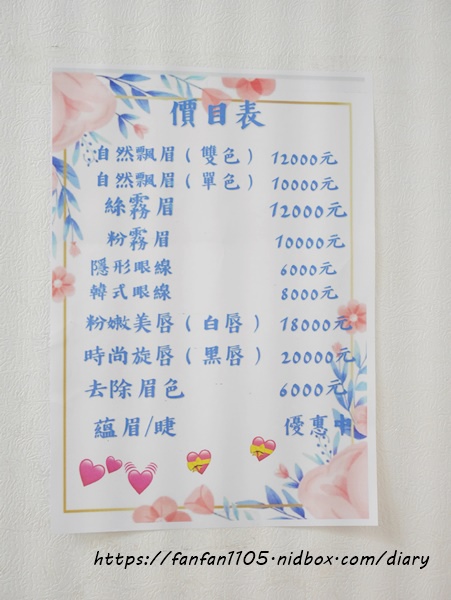 價目表
自然飄眉（雙色） 12000元
自然飄眉（單色） 10000元
絲霧眉 12000元
粉霧眉 10000元
隱形眼線 6000元
韓式眼線 8000元
粉嫩美唇（白唇） 18000元
時尚旋唇（黑唇） 20000元
去除眉色 6000元
蘊眉/睫 優惠中
https://fanfan1105.nidbox.com/diary